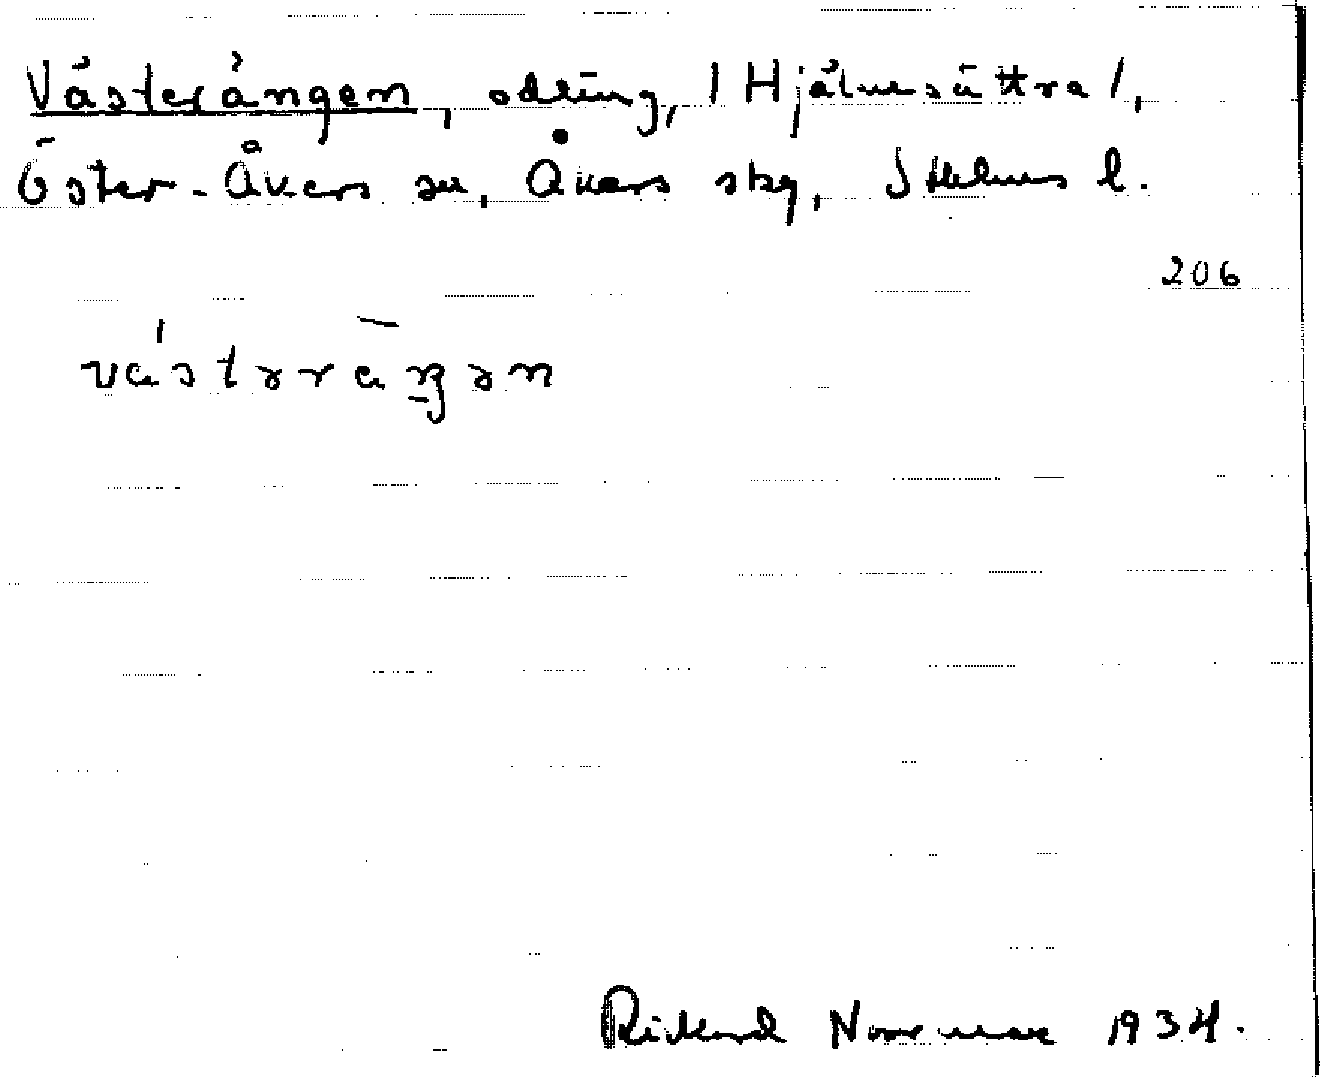 Västerängen, odling, /Hjälmsättra/,
Öster-Åkers sn, Åkers skg, Sthlms l.
206
västəräŋən
Rickard Norrman 1934.